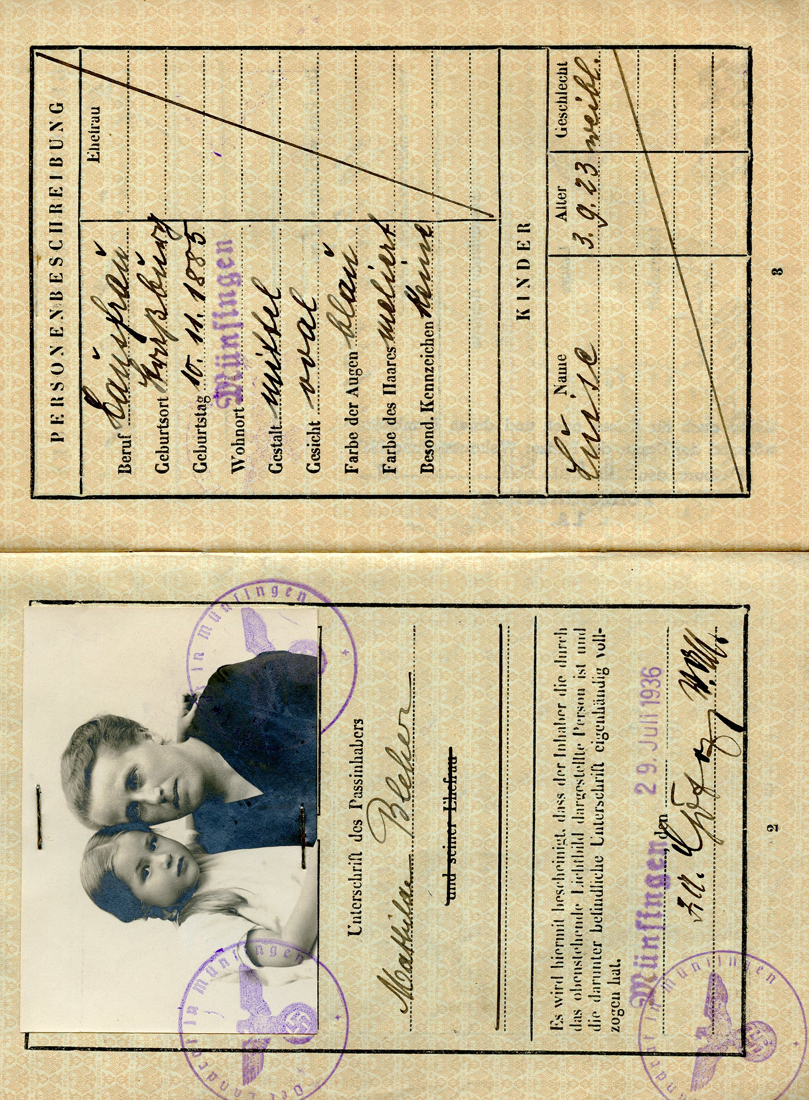 Unterschrift des Passinhabers
Mathilde Bleher
und seiner Ehefrau
Es wird hiermit bescheinigt, dass der Inhaber die durch
das obenstehende Lichtbild dargestellte Person ist und
die darunter befindliche Unterschrift eigenhändig voll-
zogen hat.
Münsingen, den 29. Juli 1936
Der Landrat in Münsingen
in Münsingen
Der Landrat in Münsingen
2
PERSONENBESCHREIBUNG
Ehefrau
Beruf Hausfrau
Geburtsort
Geburtstag 10. 11. 1885
Wohnort Münsingen
Gestalt mittel
Gesicht oval
Farbe der Augen blau
Farbe des Haares meliert
Besond. Kennzeichen keine
KINDER
Name Alter Geschlecht
Luise 3.9.23 weibl.
3